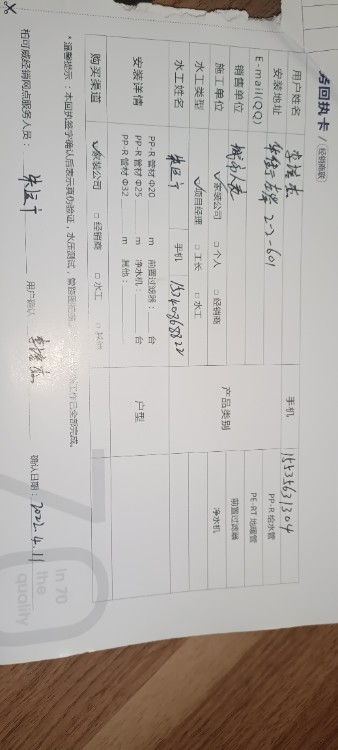 回执卡 / (经销商联)
用户姓名 手机 15535631304
安装地址 2-2-601
E-mail(QQ)
销售单位 产品类别 PP-R 给水管 PE-RT 地暖管 前置过滤器 净水机
施工单位 ✓家装公司 □ 个人 □ 经销商
水工类型 ✓项目经理 □ 工长 □ 水工
水工姓名 手机
安装详情 PP-R 管材 Φ20 m 前置过滤器: 台 户型
PP-R 管材 Φ25 m 净水机: 台
PP-R 管材 Φ32 m 其他:
购买渠道 ✓家装公司 □ 经销商 □ 水工 □ 其他
*温馨提示:本回执签字确认后表示真伪验证,水压测试,管路图拍摄 工作已全部完成。
柏可威经销网点服务人员: 用户确认: 确认日期: 2022.4.11
In 70
the
quality